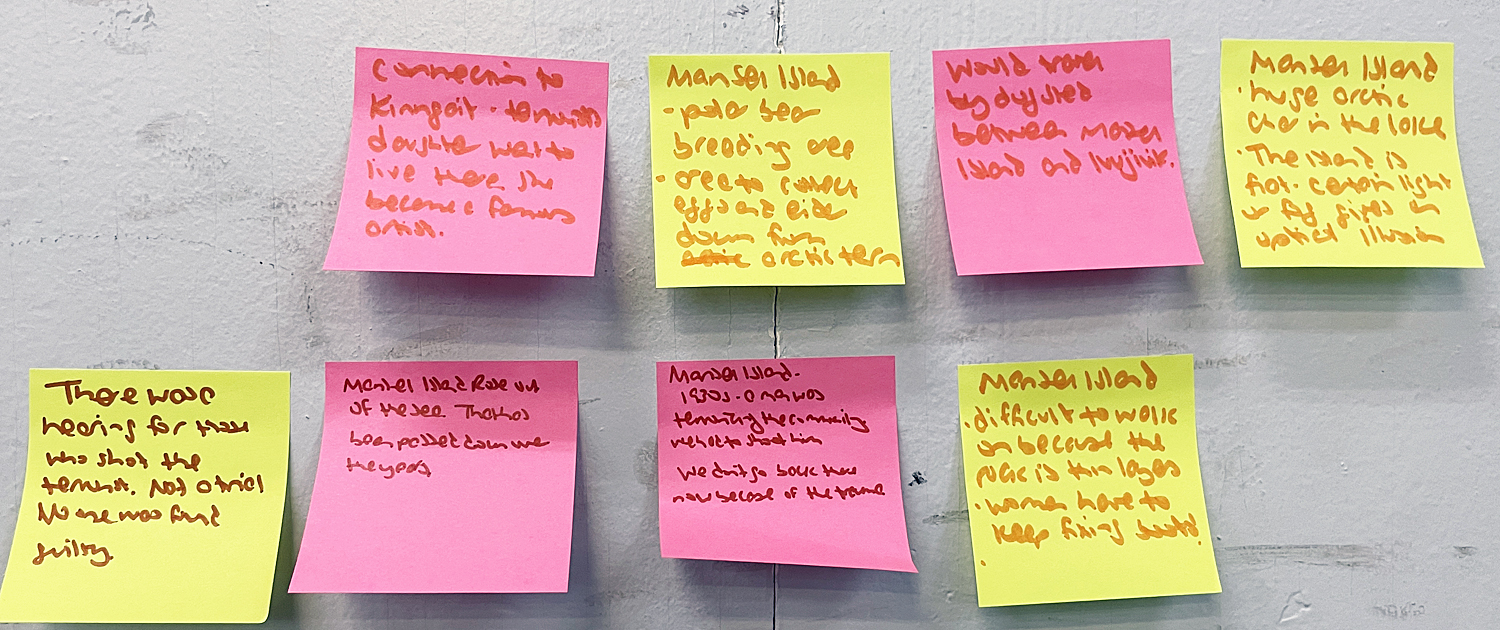 Connection to
Kinngait - terrorists
daughter went to
live there she
became a famous
artist.
Mansel Island
- polar bear
breeding area
• area to collect
eggs and eider
down from
arctic tern
Would travel
by dogsled
between Mansel
Island and Ivujivik.
Mansel Island
• huge arctic
char in the lake
• The island is
flat. certain light
or fog gives an
optical illusion
There was a
hearing for those
who shot the
terrorist. Not a trial
No one was found
guilty.
Mansel Island Rose out
of the sea. That has
been passed down over
the years
Mansel Island.
1930s - a man was
terrorizing the community
we had to shoot him
We don't go back there
now because of the trauma
Mansel Island
• difficult to walk
on because the
rock is thin layers
• women have to
keep fixing boots.
•